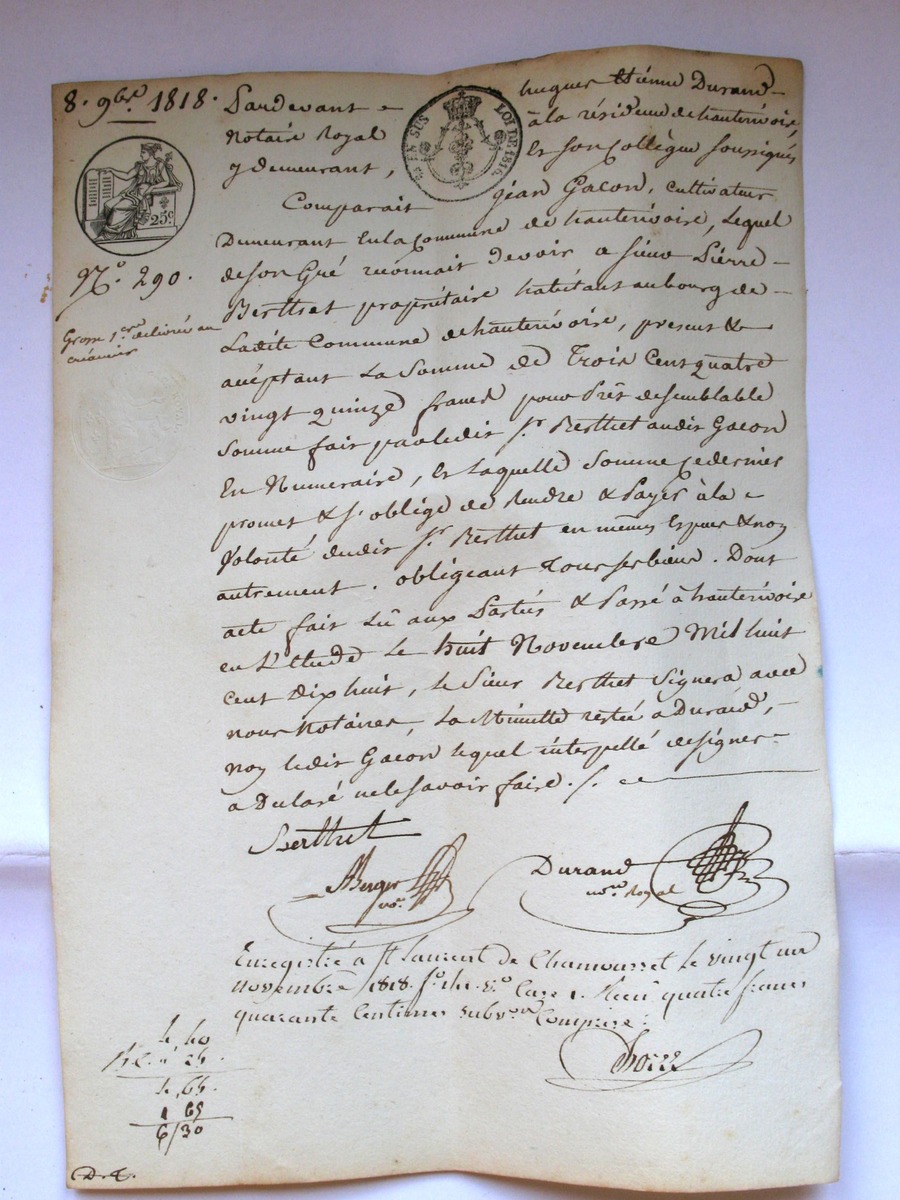 8. 9bre 1818.
Pardevant hugues Etienne Durand
Notaire Royal à la résidence de hauterivoire,
y demeurant, Et son Collègue soussignés
Comparait jean Gacon, cultivateur
EN SUS LOI DE 1816.
25 c
Demeurant En la Commune de hauterivoire, Lequel
de son Gré reconnait devoir a sieur Pierre
Berthet propriétaire habitant au bourg de
Ladite Commune de hauterivoire, present &
acceptant La Somme de Trois Cent quatre
vingt quinze francs pour Prêt de semblable
Somme fait par ledit Sr. Berthet audit Gacon
En Numeraire, Et Laquelle Somme ce dernier
promet & s'oblige de Rendre & Payer à la
Volonté dudit Sr. Berthet en mêmes Especes & non
autrement. obligeant Tous ses bieux. Dont
acte fait Lû aux Parties & Passé à hauterivoire
en L'Etude Le huit Novembre Mil huit
Cent Dix huit, le Sieur Berthet Signera avec
nous Notaires, La Minutte restée à Durand,
non ledit Gacon lequel interpellé de signer
a Declaré ne le savoir faire. /.
No. 290.
Grosse 1ere délivrée au
créancier
Berthet
Berger
no.re
Durand
no.re Royal
Enregistré à St Laurent de Chamousset le vingt un
novembre 1818. fo. 141. Vo. Case 1. Recu quatre francs
quarante Centimes subv.on Comprise.
4,40
25
4,65
1 65
6/30
D. T.